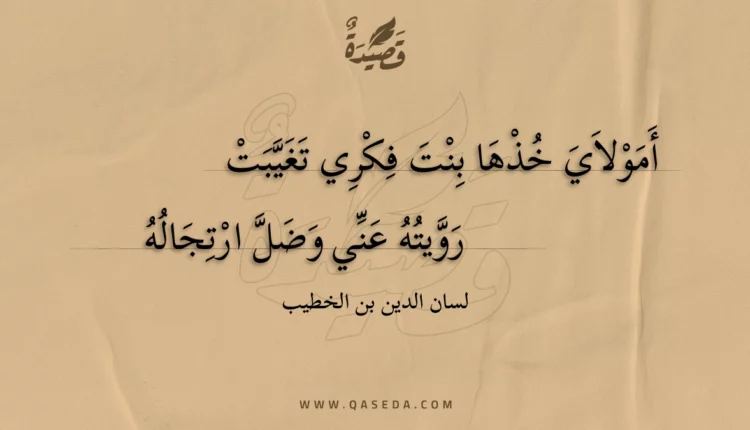 قَصِيْدَةٌ
أَمَوْلاَيَ خُذْهَا بِنْتَ فِكْرِي تَغَيَّبَتْ
رَوَّيتُهُ عَنِّي وَضَلَّ ارْتِجَالُهُ
لسان الدين بن الخطيب
WWW.QASEDA.COM